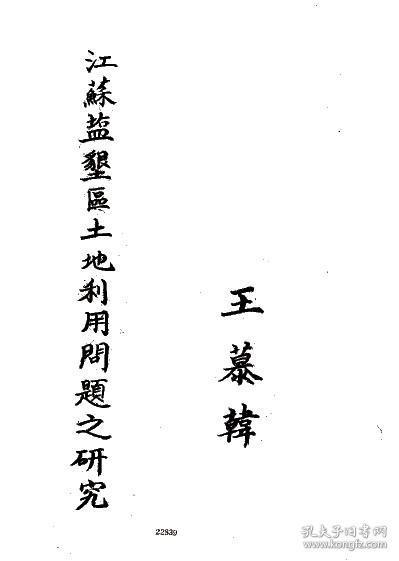 王慕韓
江蘇盐墾區土地利用問題之研究
22839
孔夫子旧书网
kongfz.com